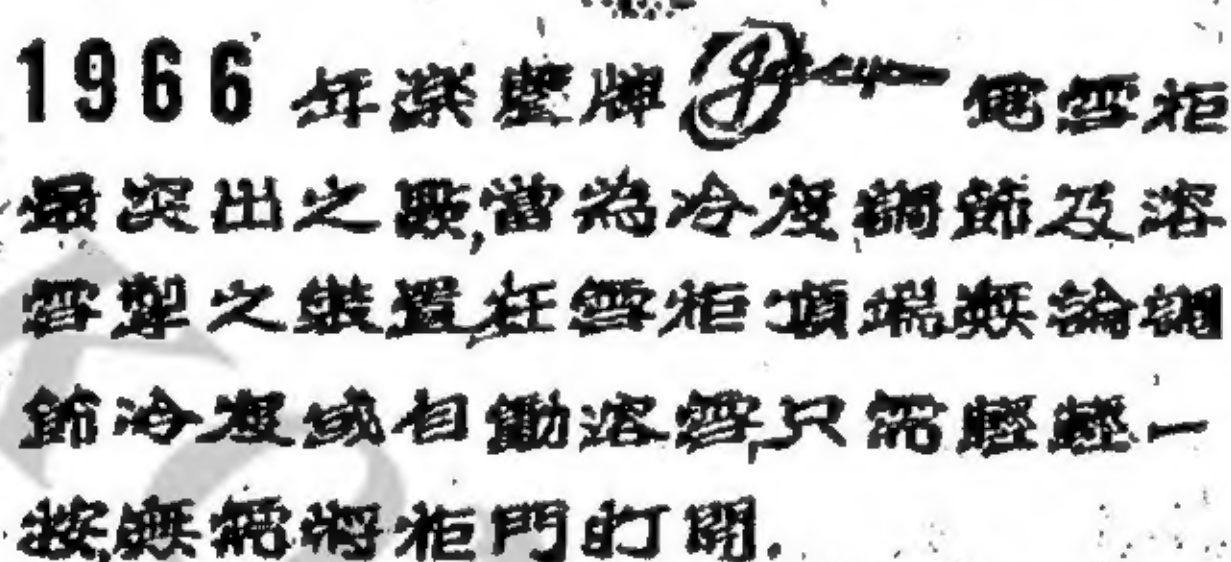 1966 年 牌 電雪柜
最突出之點,當為冷度調節及溶
雪掣之裝置,在雪柜頂端無論調
節冷度或自動溶雪,只需輕輕一
按,無需將柜門打開.